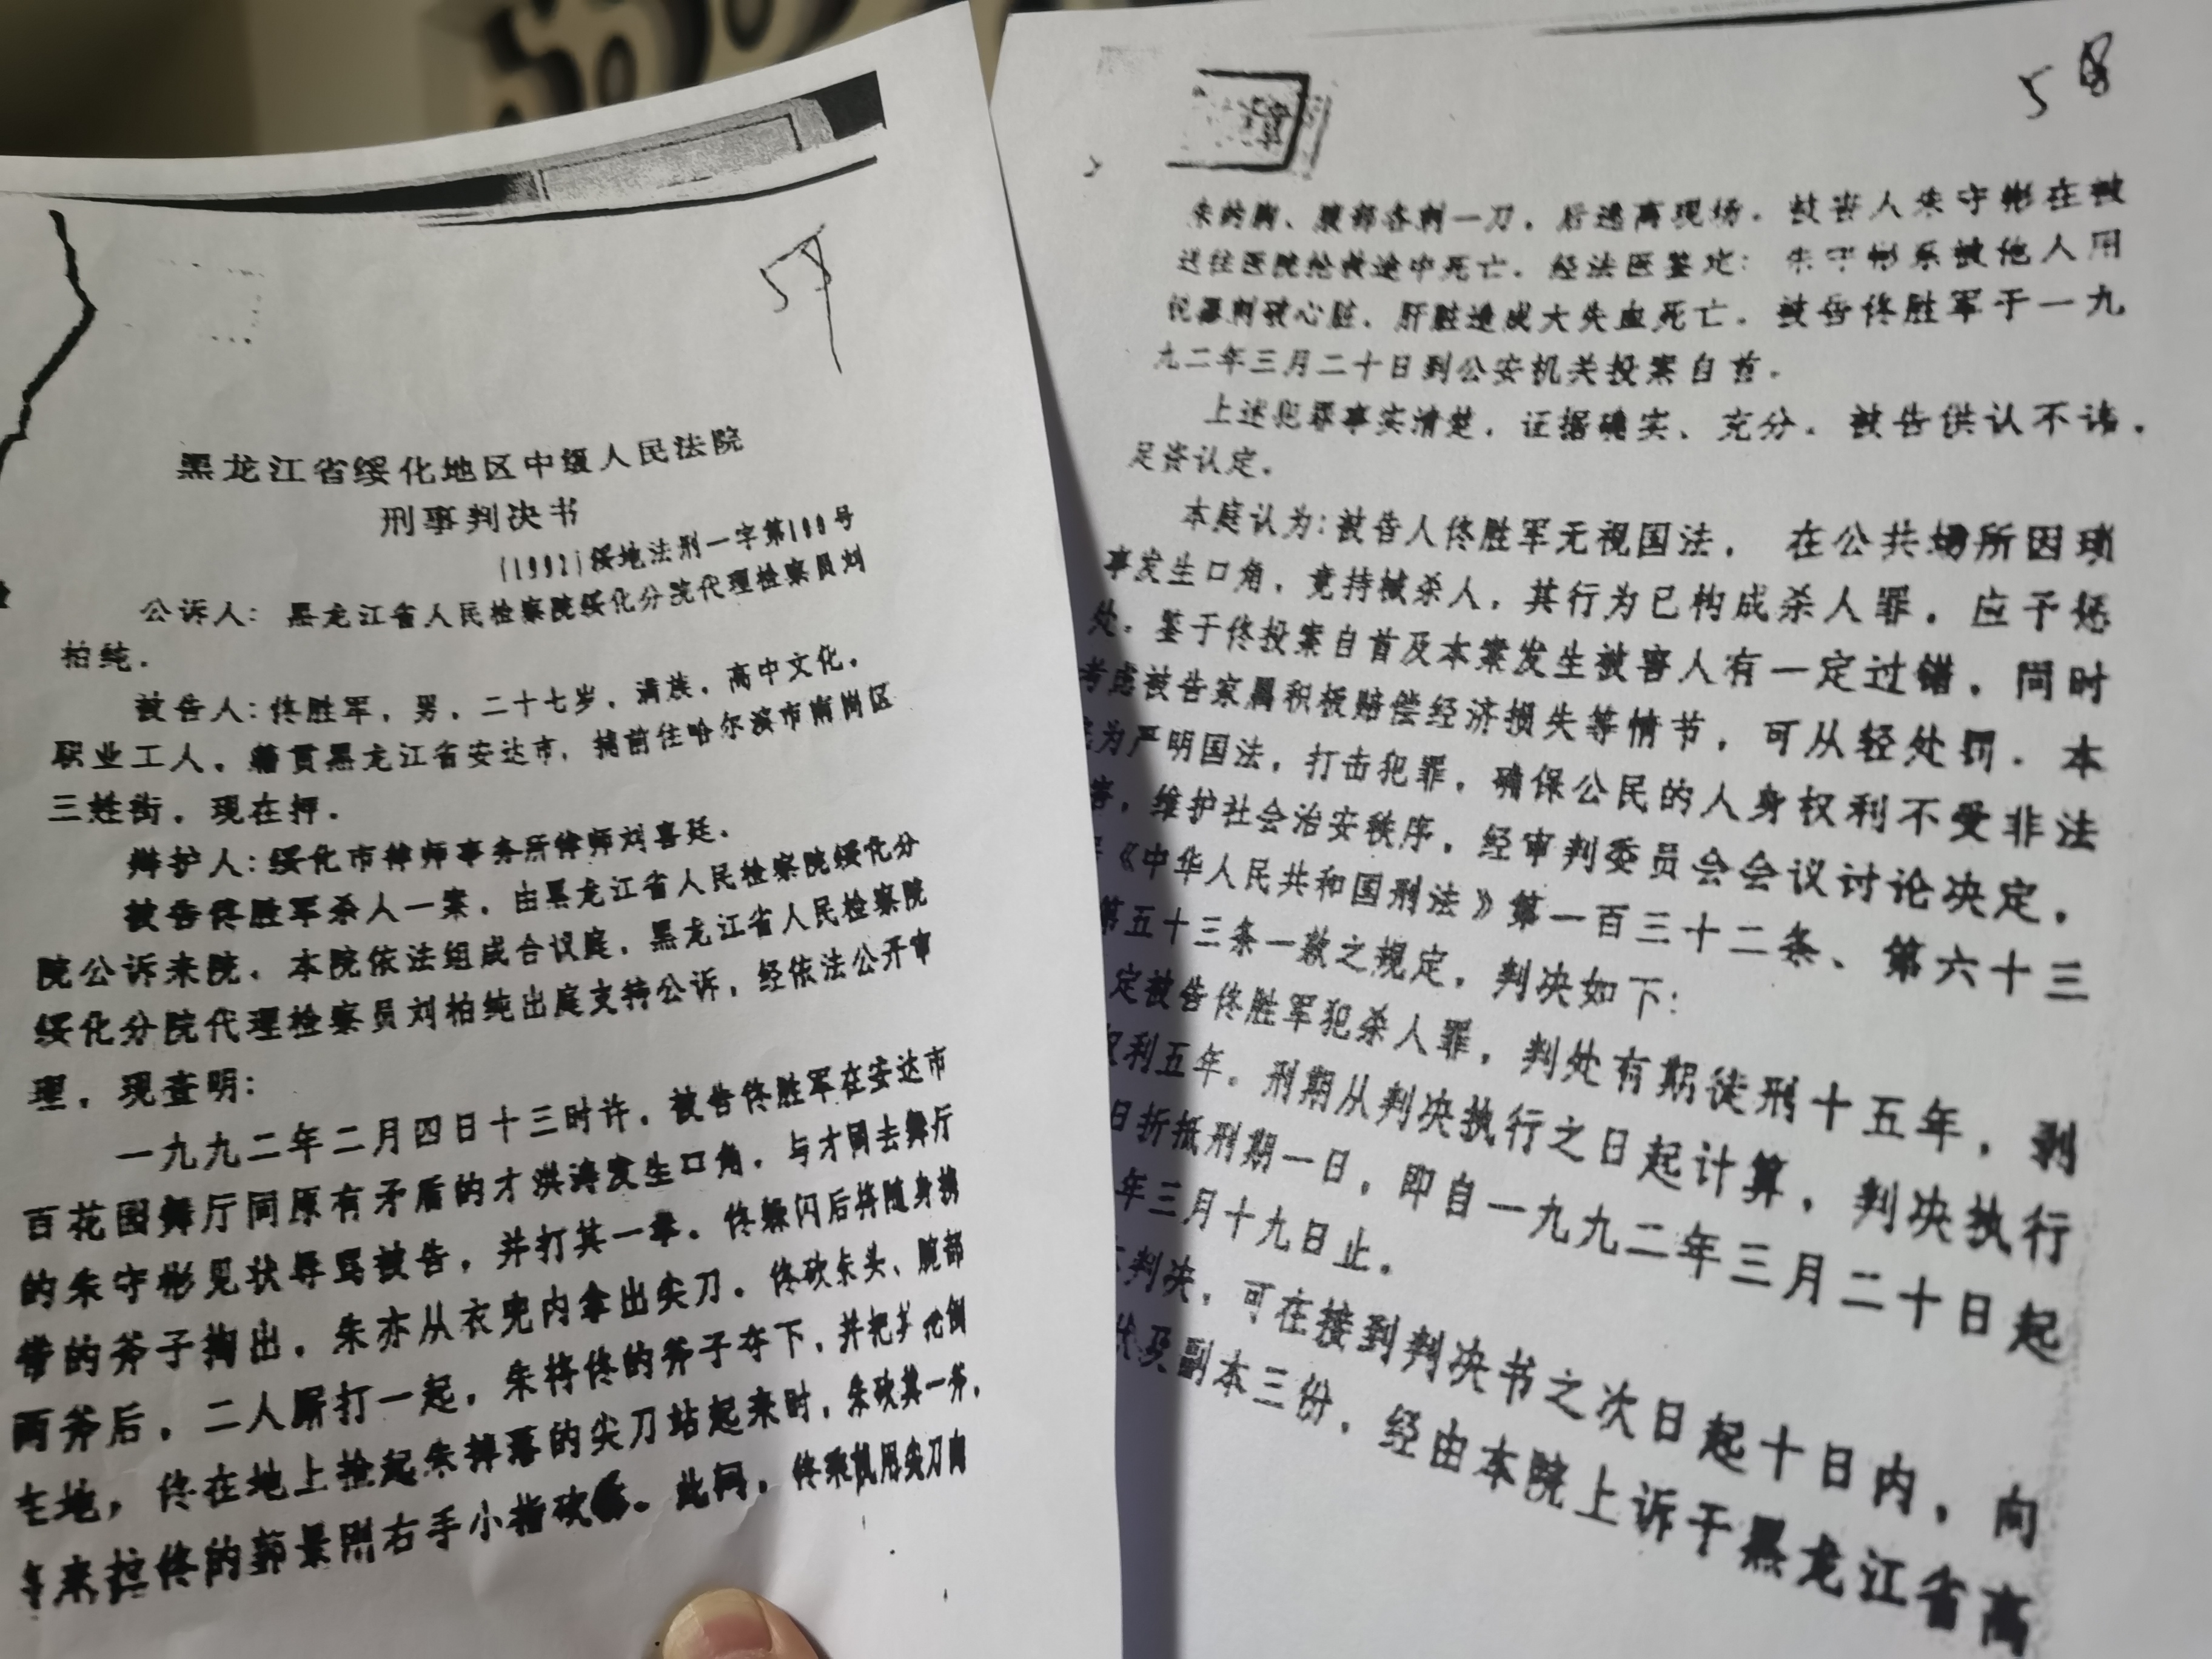 59
黑龙江省绥化地区中级人民法院
刑事判决书
(1992)绥地法刑一字第100号
公诉人：黑龙江省人民检察院绥化分院代理检察员刘
柏纯．
被告人：佟胜军，男，二十七岁，满族，高中文化，
职业工人，籍贯黑龙江省安达市，捕前住哈尔滨市南岗区
三姓街，现在押．
辩护人：绥化市律师事务所律师刘喜廷．
被告佟胜军杀人一案，由黑龙江省人民检察院绥化分
院公诉来院，本院依法组成合议庭，黑龙江省人民检察院
绥化分院代理检察员刘柏纯出庭支持公诉，经依法公开审
理，现查明：
一九九二年二月四日十三时许，被告佟胜军在安达市
百花园舞厅同原有矛盾的才洪涛发生口角，与才同去舞厅
的朱守彬见状辱骂被告，并打其一拳．佟躲闪后将随身携
带的斧子掏出，朱亦从衣兜内拿出尖刀．佟砍朱头、腕部
两斧后，二人厮打一起，朱将佟的斧子夺下，并把 佟倒
在地，佟在地上捡起朱掉落的尖刀站起来时，朱砍其一斧，
来拉佟的郭景刚右手小指砍 ．此间，佟乘机用尖刀向
58
章
朱的胸、腹部各刺一刀，后逃离现场．被害人朱守彬在被
送往医院抢救途中死亡．经法医鉴定：朱守彬系被他人用
锐器刺破心脏，肝脏造成大失血死亡．被告佟胜军于一九
九二年三月二十日到公安机关投案自首．
上述犯罪事实清楚，证据确实、充分．被告供认不讳．
足资认定．
本庭认为：被告人佟胜军无视国法，在公共场所因琐
事发生口角，竟持械杀人，其行为已构成杀人罪，应予惩
处．鉴于佟投案自首及本案发生被害人有一定过错，同时
考虑被告家属积极赔偿经济损失等情节，可从轻处罚．本
为严明国法，打击犯罪，确保公民的人身权利不受非法
害，维护社会治安秩序，经审判委员会会议讨论决定，
《中华人民共和国刑法》第一百三十二条、第六十三
第五十三条一款之规定，判决如下：
定被告佟胜军犯杀人罪，判处有期徒刑十五年，剥
权利五年．刑期从判决执行之日起计算，判决执行
日折抵刑期一日，即自一九九二年三月二十日起
年三月十九日止．
判决，可在接到判决书之次日起十日内，向
状及副本三份，经由本院上诉于黑龙江省高